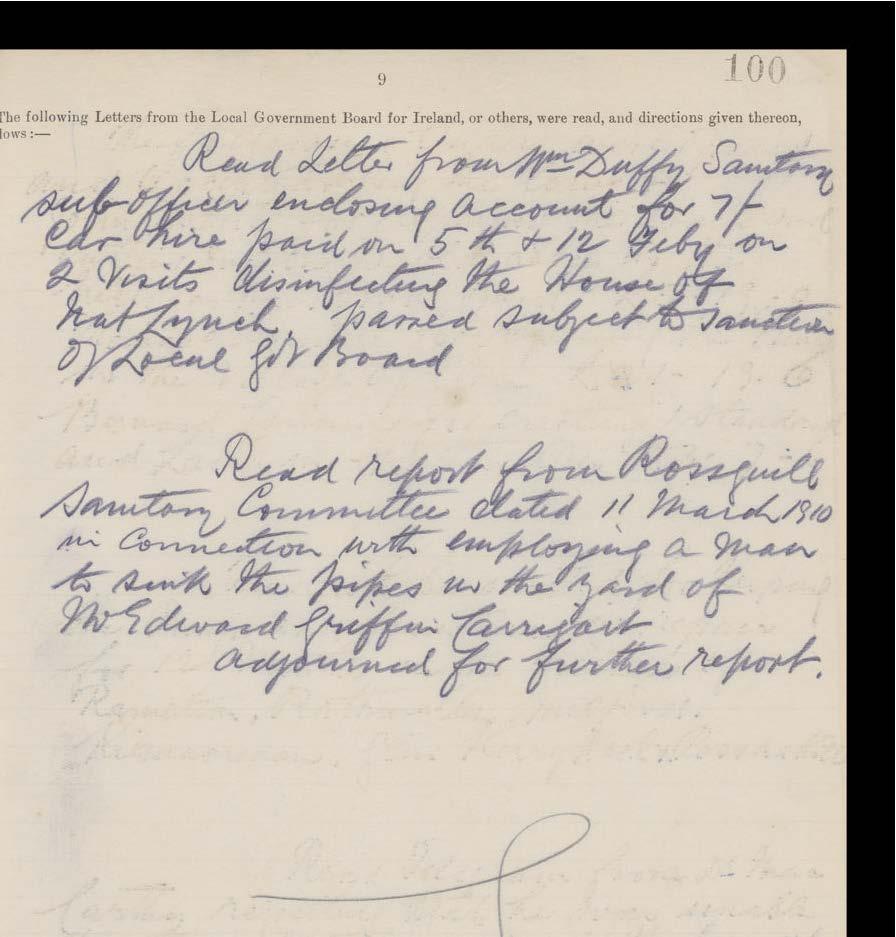 9
100
The following Letters from the Local Government Board for Ireland, or others, were read, and directions given thereon,
lows :—
Read Letter from Wm Duffy Sanitary
sub officer enclosing account for 7/-
Car hire paid on 5th & 12 Feby on
2 Visits disinfecting the House of
Nat Lynch, passed subject to sanction
Of Local Gvt Board
Read report from Rossguill
Sanitary Committee dated 11 March 1910
in connection with employing a man
to sink the pipes in the yard of
Mr Edward Griffin Carrigart
adjourned for further report.